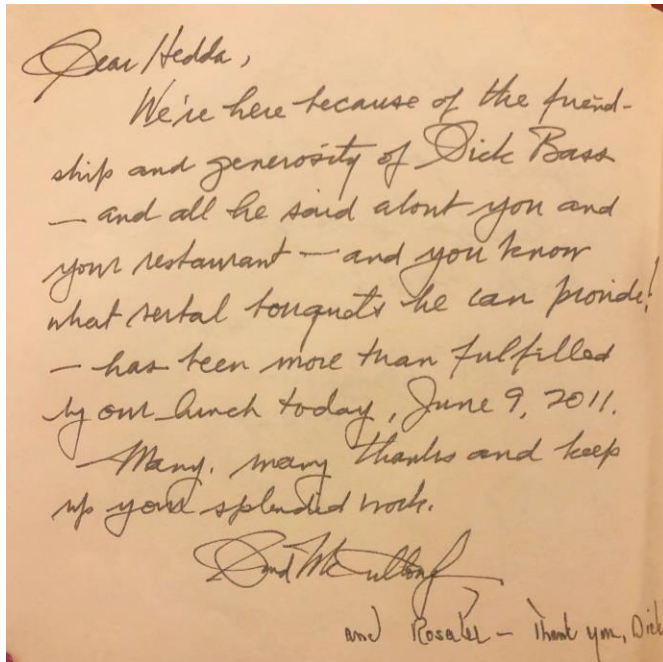 Dear Hedda,
We're here because of the friend-
ship and generosity of Dick Bass
— and all he said about you and
your restaurant — and you know
what verbal bouquets he can provide!
— has been more than fulfilled
by our lunch today, June 9, 2011.
Many, many thanks and keep
up your splendid work.
David McCullough
and Rosalee — Thank you, Dick